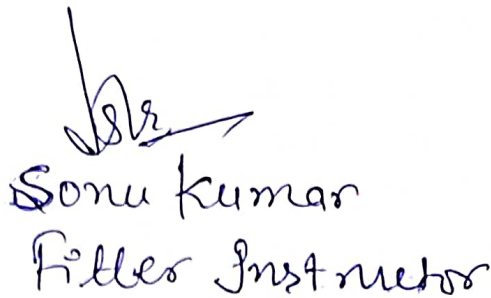 Sonu Kumar
Fitter Instructor